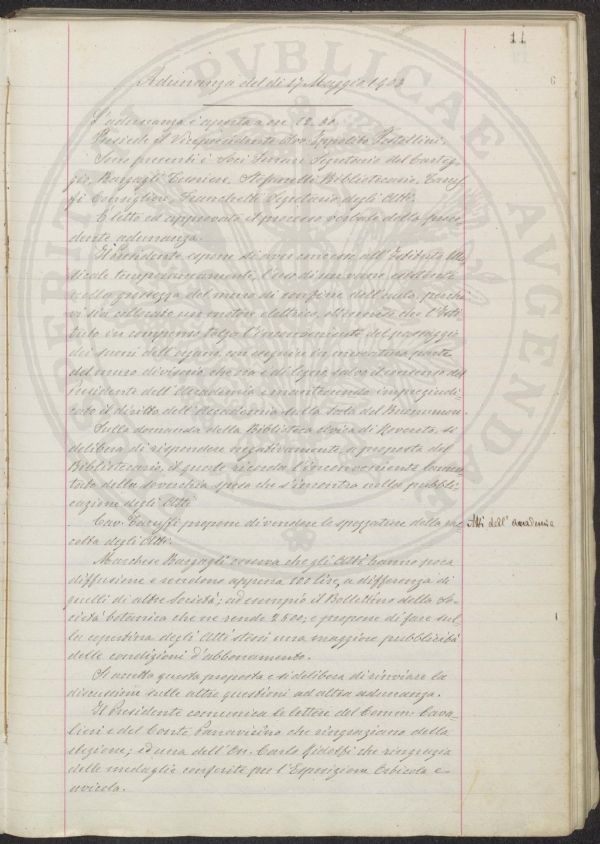 11
6
Adunanza del dì 17 Maggio 1903
L'adunanza è aperta a ore 12.30
Presiede il Vicepresidente Avv. Ippolito Pestellini.
Sono presenti i Soci Segretario del Carteg-
gio, Bargagli Economo, Stefanelli Bibliotecario, Taruf-
fi Consigliere, Franchetti Segretario degli Atti.
È letto ed approvato il processo verbale della prece-
dente adunanza.
Il Presidente espone di aver concesso all'Istituto Mu-
sicale temporaneamente, l'uso di un vano esistente
nella grossezza del muro di confine dell'aula, perché
vi sia collocato un motore elettrico, ottenendo che l'Isti-
tuto in compenso tolga l'inconveniente del passaggio
dei suoni dell'organo, con eseguire in muratura parte
del muro divisorio che ora è di legno salvo il consenso del
Presidente dell'Accademia e mantenendo impregiudi-
cato il diritto dell'Accademia della Sala del Buonumore.
Sulla domanda della Biblioteca civica di Rovereto, si
delibera di rispondere negativamente, a proposta del
Bibliotecario, il quale ricorda l'inconveniente lamen-
tato della soverchia spesa che s'incontra nella pubbli-
cazione degli Atti
Cav. Taruffi propone di vendere le spezzature della rac-
colta degli Atti.
Atti dell'accademia
Marchese Bargagli osserva che gli Atti hanno poca
diffusione e rendono appena 100 lire, a differenza di
quelli di altre Società; ad esempio il Bollettino della So-
cietà botanica che ne rende 2500; e propone di fare sul-
la copertina degli Atti stessi una maggiore pubblicità
delle condizioni d'abbonamento.
Si accetta questa proposta e si delibera di rinviare la
discussione sulle altre questioni ad altra adunanza.
Il Presidente comunica le lettere del Comm. Cava-
lieri e del Conte che ringraziano della
elezione; ed una dell'On. Carlo Ridolfi che ringrazia
delle medaglie conferite per l'Esposizione Orticola e
avicola.